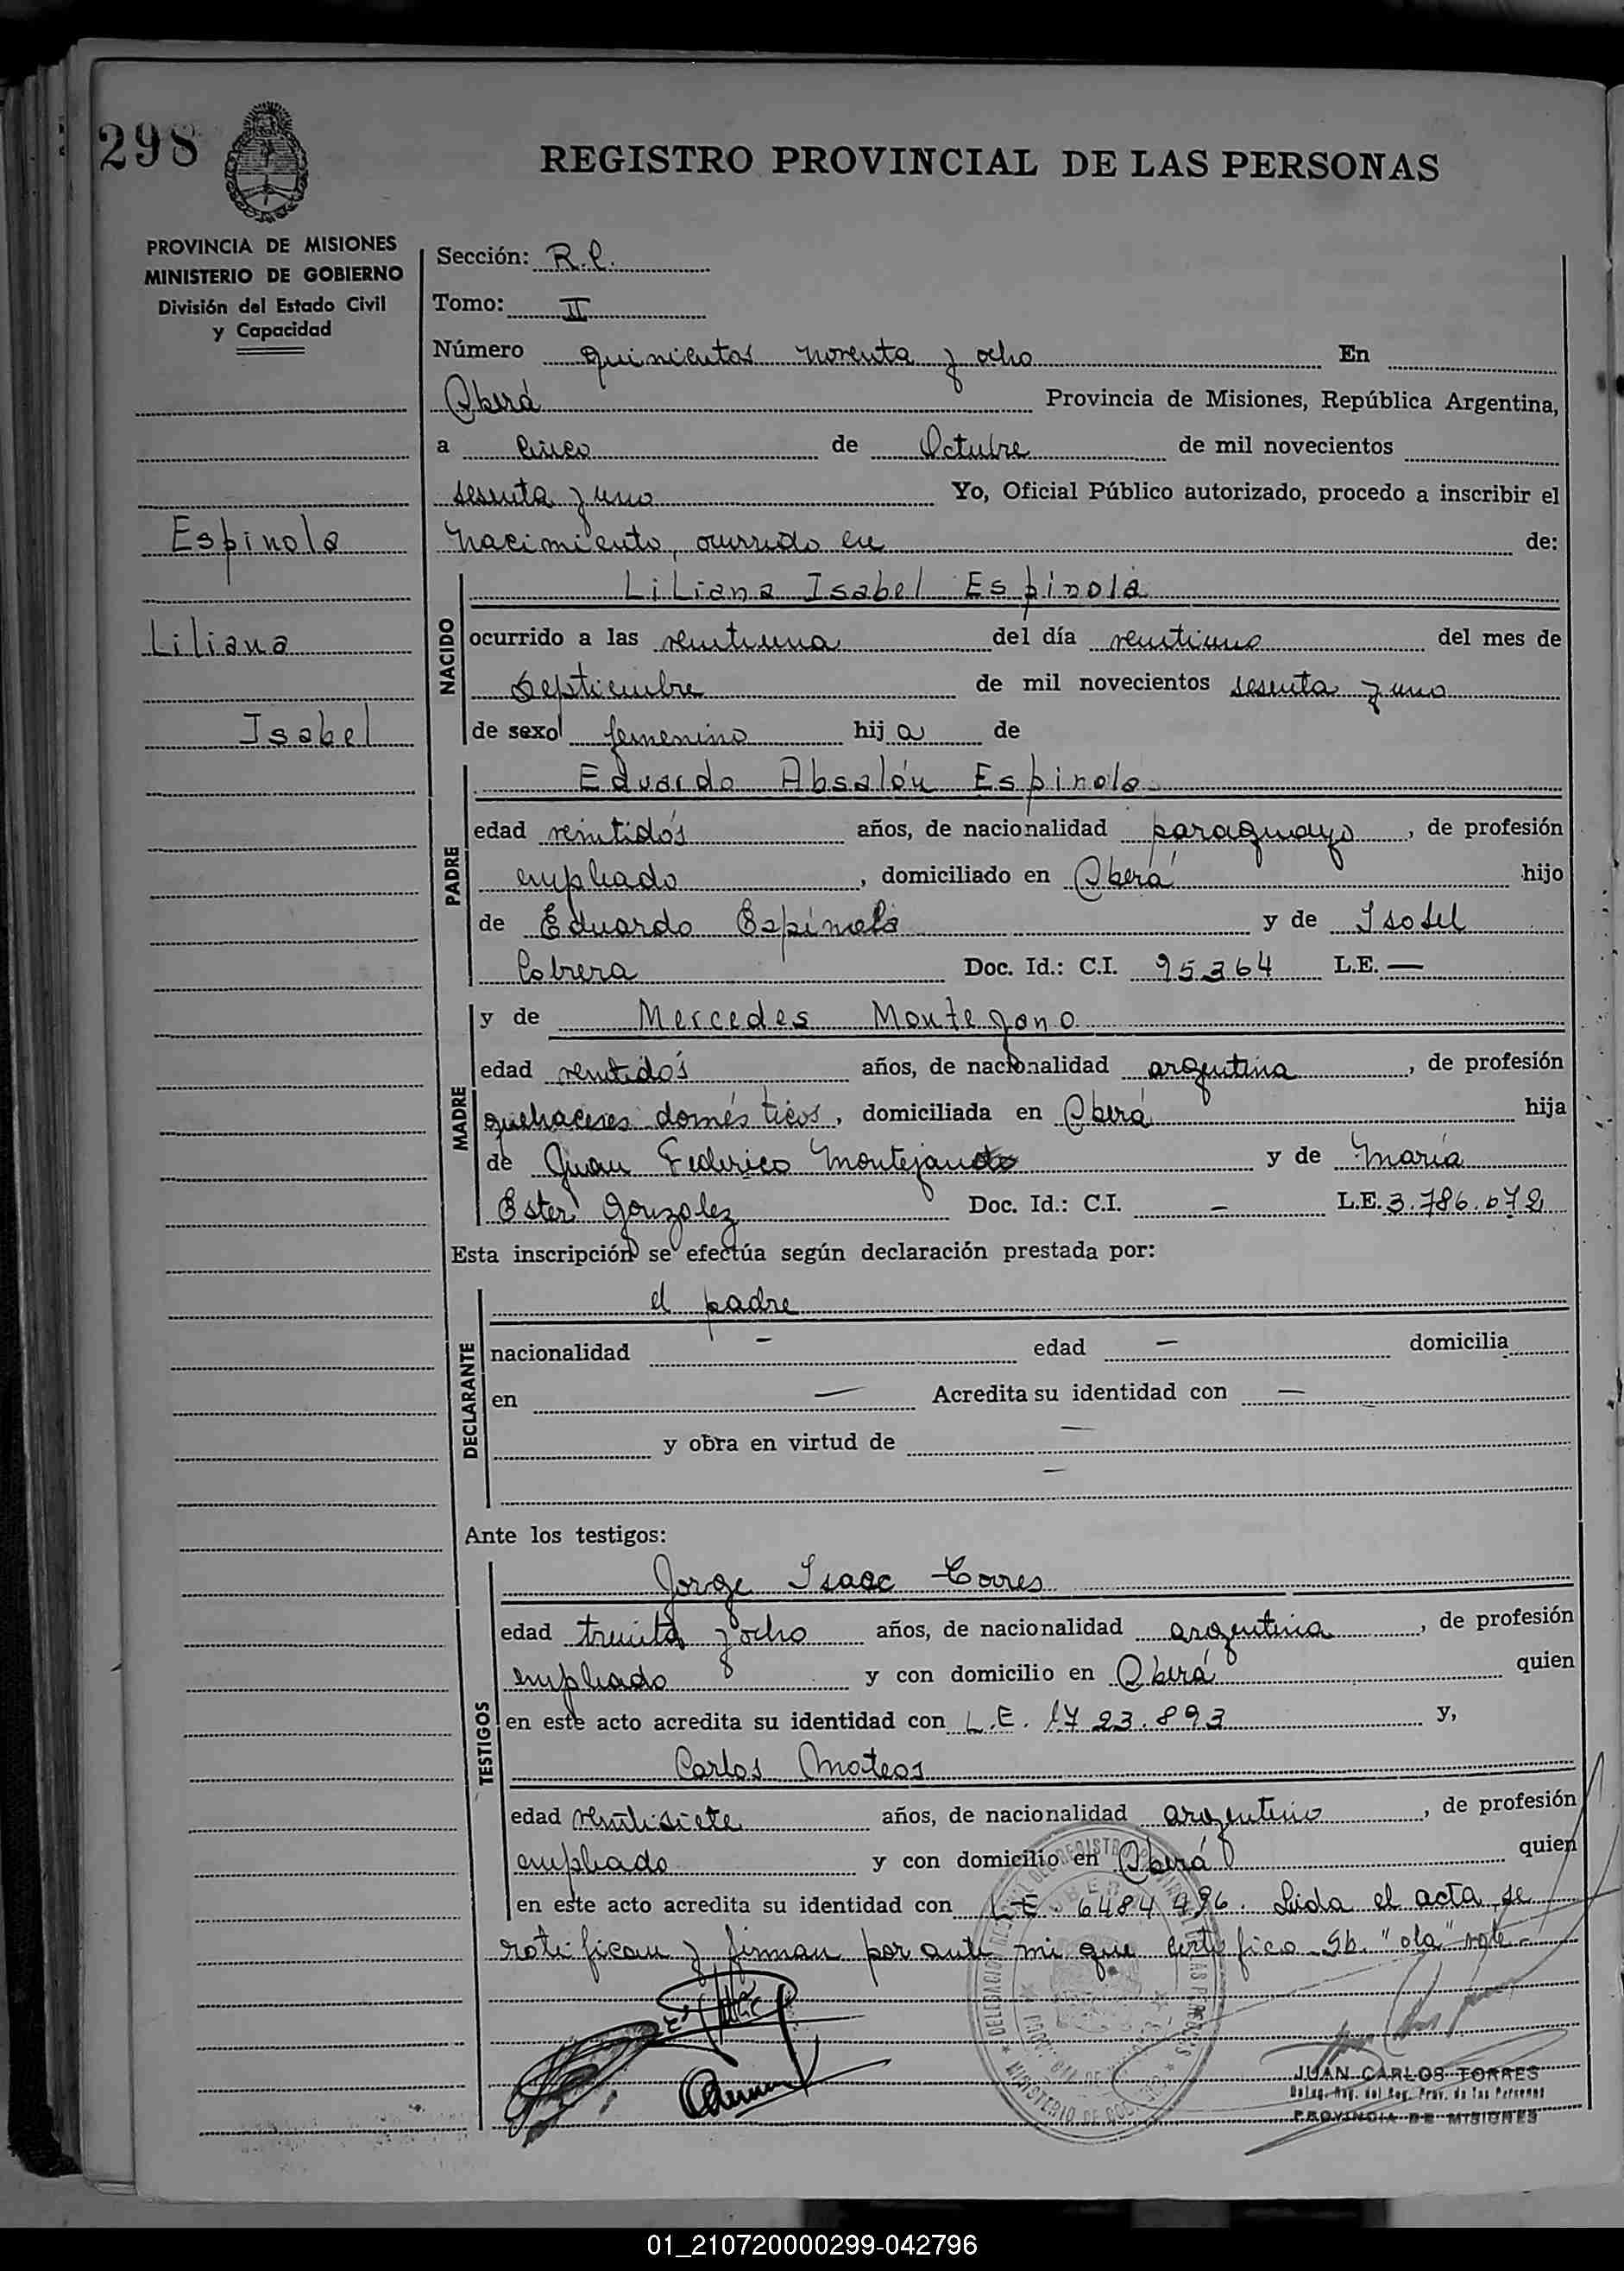 298
REGISTRO PROVINCIAL DE LAS PERSONAS
PROVINCIA DE MISIONES
MINISTERIO DE GOBIERNO
División del Estado Civil
y Capacidad
Espinola
Liliana
Isabel
Sección: R.C.
Tomo: II
Número quinientos noventa y ocho En
Oberá Provincia de Misiones, República Argentina,
a cinco de Octubre de mil novecientos
sesenta y uno Yo, Oficial Público autorizado, procedo a inscribir el
nacimiento, ocurrido en de:
NACIDO
Liliana Isabel Espinola
ocurrido a las veintiuna del día veintiuno del mes de
Septiembre de mil novecientos sesenta y uno
de sexo femenino hij a de
PADRE
Eduardo Absalón Espinola
edad veintidós años, de nacionalidad paraguayo, de profesión
empleado, domiciliado en Oberá hijo
de Eduardo Espínola y de Isabel
Cabrera Doc. Id.: C.I. 95.364 L.E. —
MADRE
y de Mercedes Montejano
edad ventidós años, de nacionalidad argentina, de profesión
quehaceres domésticos, domiciliada en Oberá hija
de Juan Federico y de María
Ester Gonzalez Doc. Id.: C.I. — L.E. 3.786.072
Esta inscripción se efectúa según declaración prestada por:
DECLARANTE
el padre
nacionalidad — edad — domicilia
en — Acredita su identidad con —
y obra en virtud de —
—
Ante los testigos:
TESTIGOS
Jorge Isaac Torres
edad treinta y ocho años, de nacionalidad argentina, de profesión
empleado y con domicilio en Oberá quien
en este acto acredita su identidad con L.E. 1723.893 y,
Carlos Mateos
edad veintisiete años, de nacionalidad argentino, de profesión
empleado y con domicilio en Oberá quien
en este acto acredita su identidad con L.E. 6484.496. Leida el acta, se
ratifican y firman por ante mi que certifico Sb. "ola" vale.-
JUAN CARLOS TORRES
Deleg. del Reg. Prov. de las Personas
PROVINCIA DE MISIONES
01_210720000299-042796